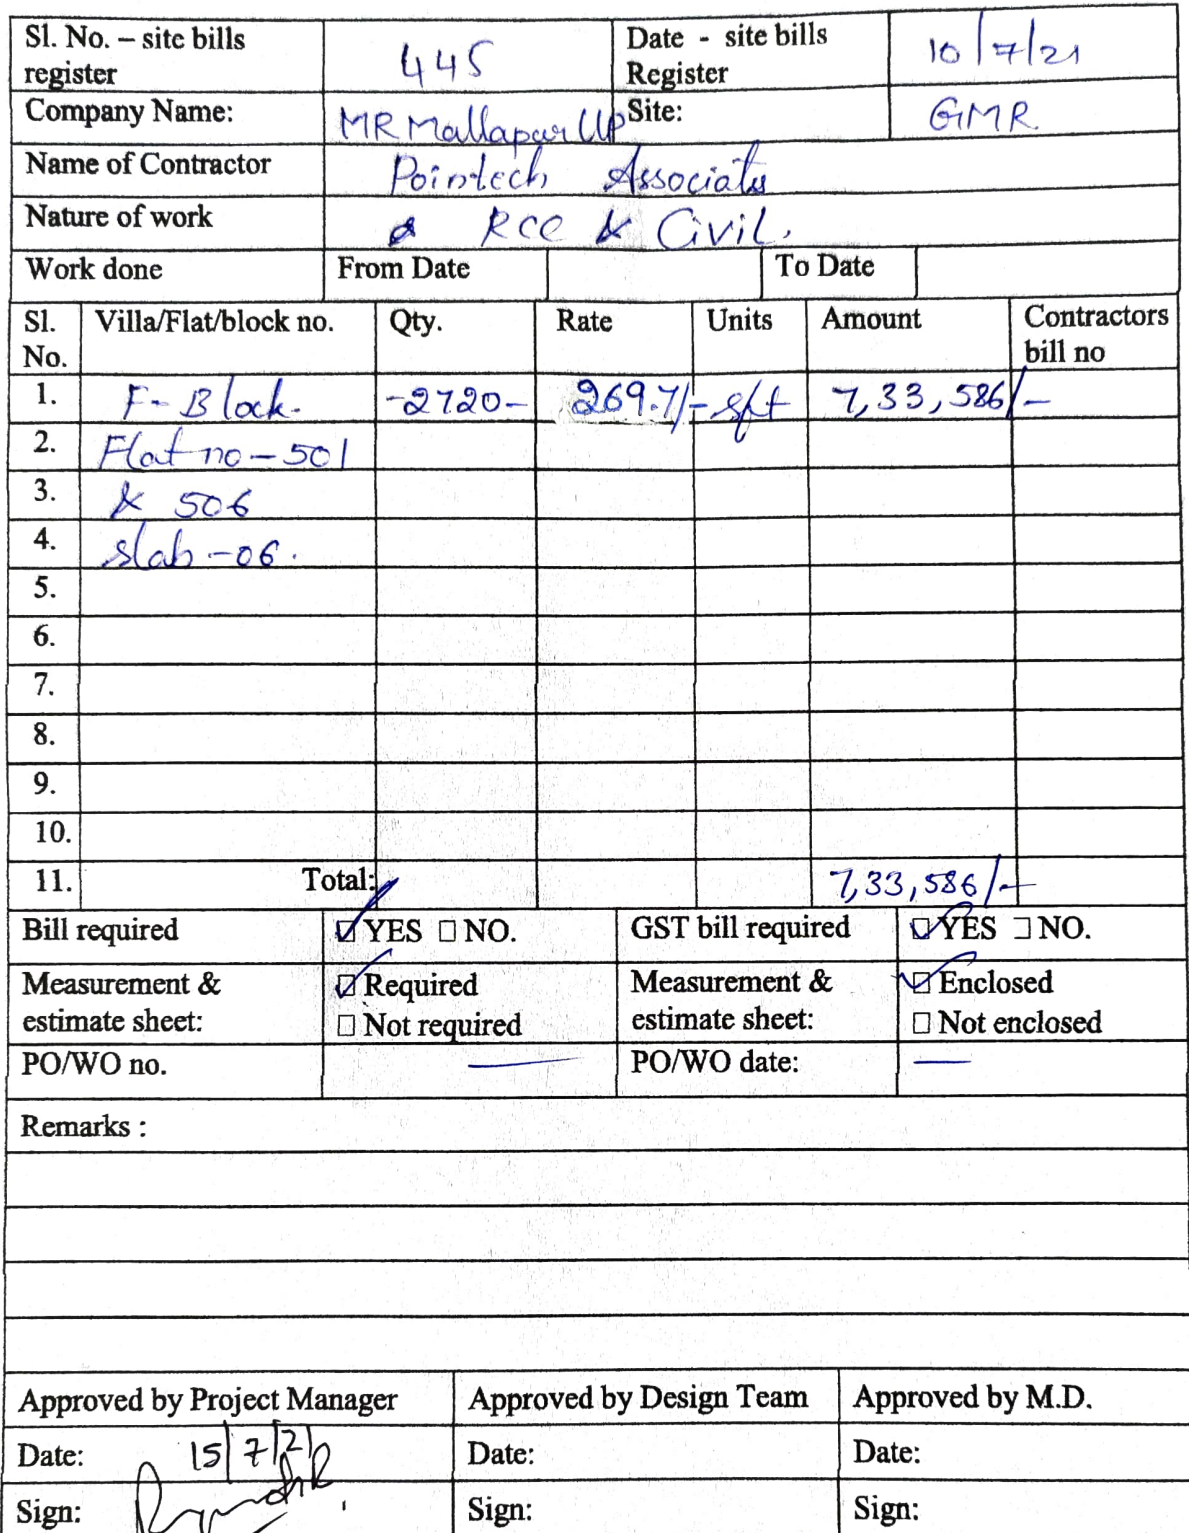 Sl. No. – site bills register 445 Date - site bills Register 10/7/21
Company Name: MR Mallapur LLP Site: GMR
Name of Contractor Pointech Associates
Nature of work RCC & Civil.
Work done From Date To Date
Sl. No. Villa/Flat/block no. Qty. Rate Units Amount Contractors bill no
1. F-Block. -2720- 269.7/- sft 7,33,586/-
2. Flat no-501
3. & 506
4. slab-06.
5.
6.
7.
8.
9.
10.
11. Total: 7,33,586/-
Bill required ☑ YES ☐ NO. GST bill required ☑ YES ☐ NO.
Measurement & estimate sheet: ☑ Required ☐ Not required Measurement & estimate sheet: ☑ Enclosed ☐ Not enclosed
PO/WO no. — PO/WO date: —
Remarks :
Approved by Project Manager Approved by Design Team Approved by M.D.
Date: 15/7/21 Date: Date:
Sign: Sign: Sign: